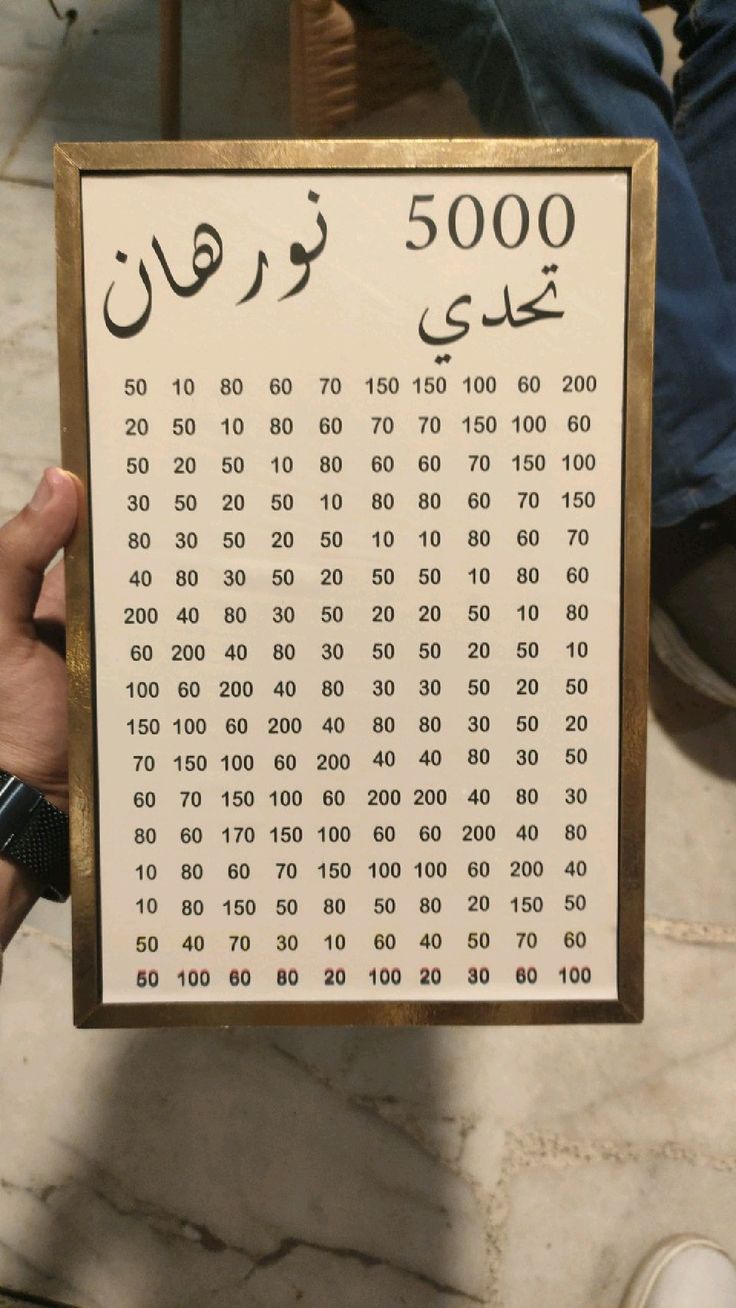 5000 نورهان
تحدي
50 10 80 60 70 150 150 100 60 200
20 50 10 80 60 70 70 150 100 60
50 20 50 10 80 60 60 70 150 100
30 50 20 50 10 80 80 60 70 150
80 30 50 20 50 10 10 80 60 70
40 80 30 50 20 50 50 10 80 60
200 40 80 30 50 20 20 50 10 80
60 200 40 80 30 50 50 20 50 10
100 60 200 40 80 30 30 50 20 50
150 100 60 200 40 80 80 30 50 20
70 150 100 60 200 40 40 80 30 50
60 70 150 100 60 200 200 40 80 30
80 60 170 150 100 60 60 200 40 80
10 80 60 70 150 100 100 60 200 40
10 80 150 50 80 50 80 20 150 50
50 40 70 30 10 60 40 50 70 60
50 100 60 80 20 100 20 30 60 100